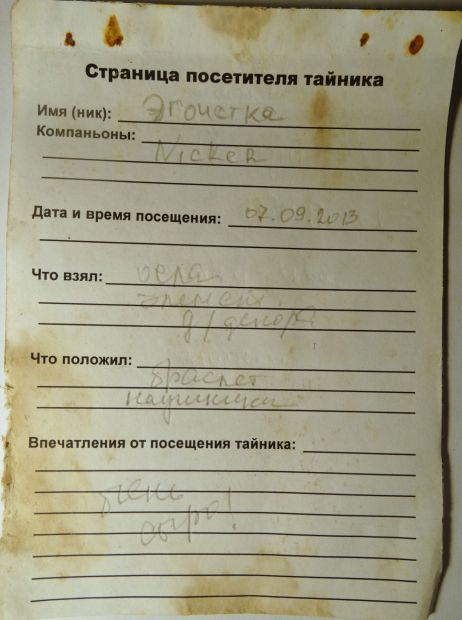 Страница посетителя тайника
Имя (ник): Эгоистка
Компаньоны:
Nicker
Дата и время посещения: 07.09.2013
Что взял:
элемент
д/декора
Что положил:
браслет
наушники
Впечатления от посещения тайника:
очень
сыро!